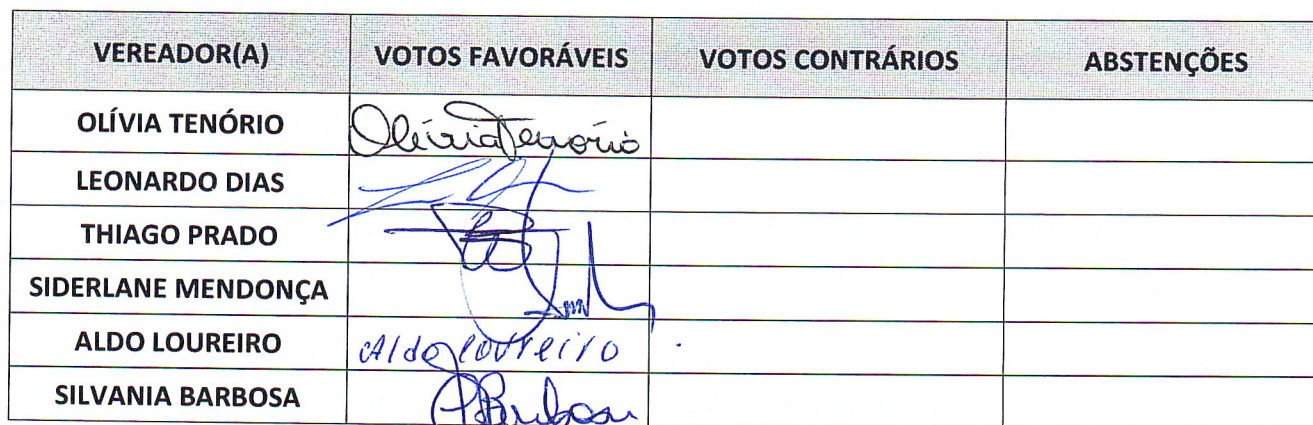 VEREADOR(A) VOTOS FAVORÁVEIS VOTOS CONTRÁRIOS ABSTENÇÕES
OLÍVIA TENÓRIO Olívia Tenório
LEONARDO DIAS
THIAGO PRADO
SIDERLANE MENDONÇA
ALDO LOUREIRO Aldo Loureiro
SILVANIA BARBOSA SBarbosa